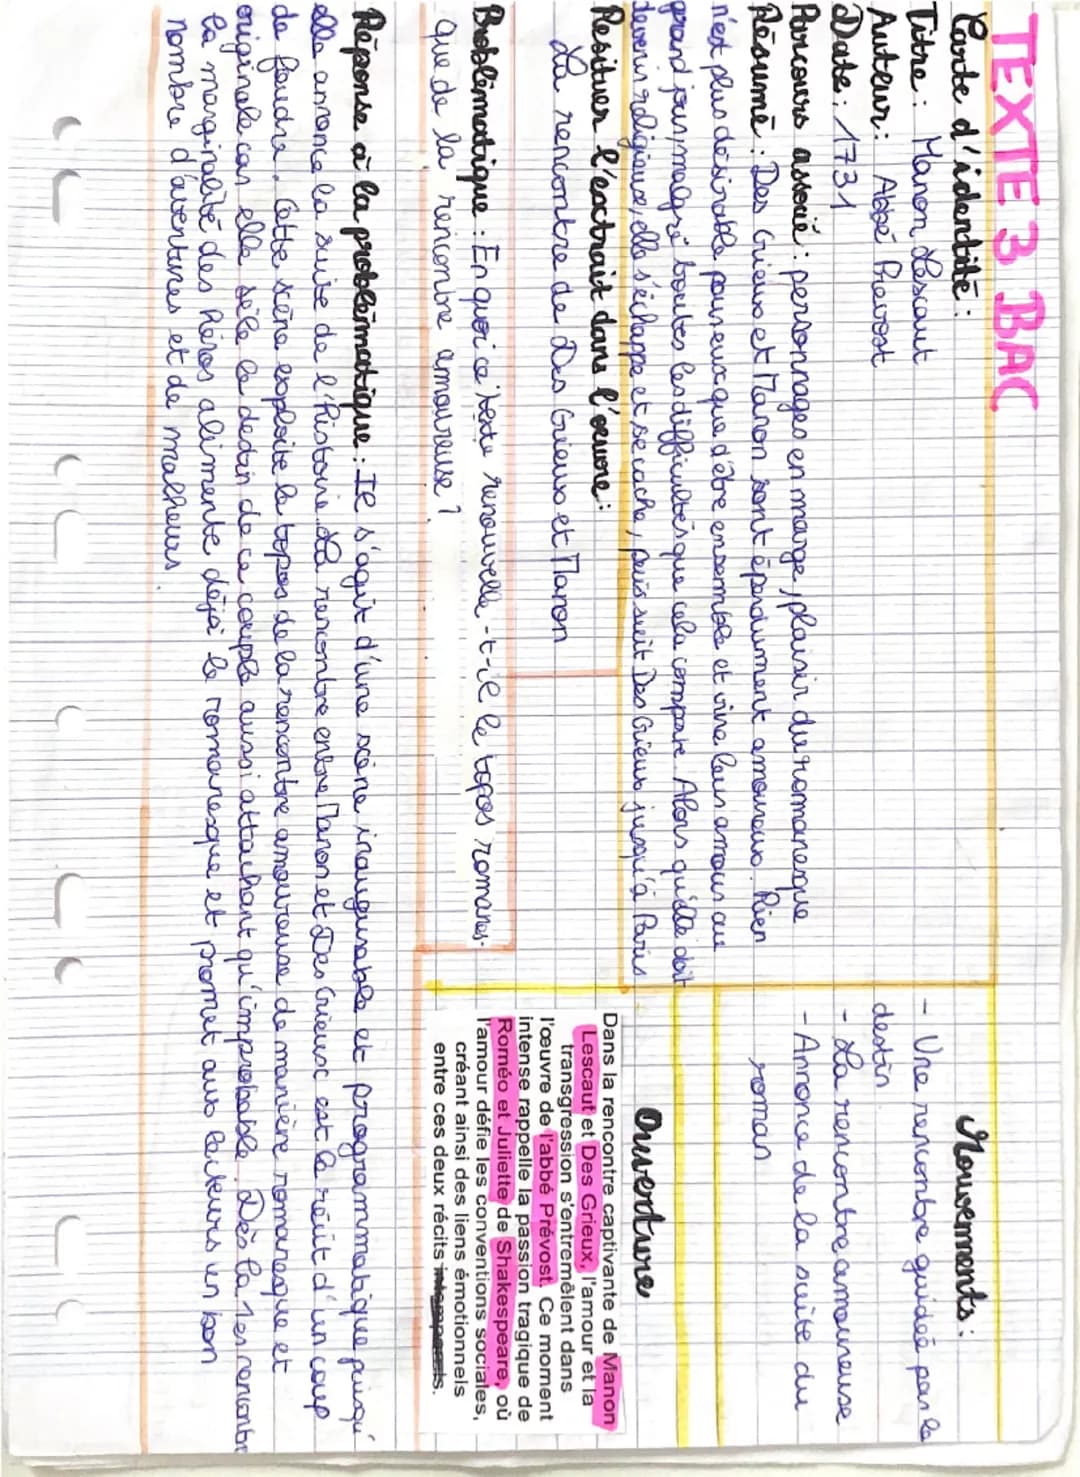 TEXTE 3 BAC
Carte d'identité :
Titre : Manon Lescaut
Auteur : Abbé Prevost
Date : 1731
Parcours associé : personnages en marge, plaisir du romanesque
Résumé : Des Grieux et Manon sont éperdument amoureux. Rien
n'est plus désirable pour eux que d'être ensemble et vivre leur amour au
grand jour, malgré toutes les difficultés que cela comporte. Alors qu'elle doit
devenir religieuse, elle s'échappe et se cache, puis suit Des Grieux jusqu'à Paris
Resituer l'extrait dans l'œuvre :
La rencontre de Des Grieux et Manon
Problématique : En quoi ce texte renouvelle-t-il le topos romanes-
que de la rencontre amoureuse ?
Mouvements :
- Une rencontre guidée par le
destin
- La rencontre amoureuse
- Annonce de la suite du
roman
Ouverture
Dans la rencontre captivante de Manon
Lescaut et Des Grieux, l'amour et la
transgression s'entremêlent dans
l'œuvre de l'abbé Prévost. Ce moment
intense rappelle la passion tragique de
Roméo et Juliette de Shakespeare, où
l'amour défie les conventions sociales,
créant ainsi des liens émotionnels
entre ces deux récits
Réponse à la problématique : Il s'agit d'une scène inaugurable et programmatique puisqu'
elle annonce la suite de l'histoire. La rencontre entre Manon et Des Grieux est le récit d'un coup
de foudre. Cette scène exploite le topos de la rencontre amoureuse de manière romanesque et
originale car elle sèle le destin de ce couple aussi attachant qu'improbable. Dès la 1ère rencontre
la marginalité des héros alimente déjà le romanesque et promet aux lecteurs un bon
nombre d'aventures et de malheurs.